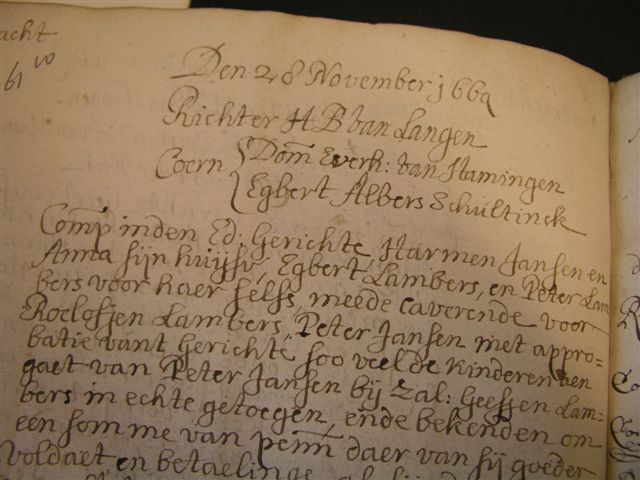 acht
Den 28 November 1669
Richter H B van Langen
Coern { Dom̄ Everh: van Hamingen
Egbert Albers Schultinck
Comp̄ inden Ed: Gerichte, Harmen Jansen en
Anna sijn huijsv, Egbert Lambers, en Peter Lam
bers voor haer selfs, meede caverende voor
Roelofjen Lambers, Peter Jansen met appro-
batie vant Gerichte soo veel de kinderen aen
gaet van Peter Jansen bij Zal: Geesjen Lam-
bers in echte getoegen, ende bekenden om
een somme van penn̄ daer van sij goeder
voldaet, en betaelinge